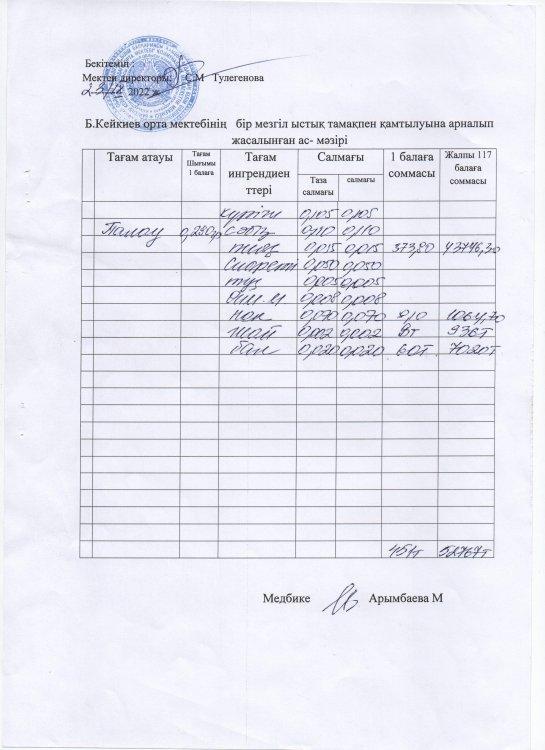 Бекітемін :
Мектеп директоры: С.М Тулегенова
2022 ж
Б.Кейкиев орта мектебінің бір мезгіл ыстық тамақпен қамтылуына арналып
жасалынған ас- мәзірі
Тағам атауы Тағам Шығымы 1 балаға Тағам ингрендиен ттері Салмағы 1 балаға соммасы Жалпы 117 балаға соммасы
Таза салмағы салмағы
күріш 0,105 0,105
Палау 0,280гр сәбіз 0,110 0,110
пияз 0,015 0,015 373,90 43746,30
0,050 0,050
тұз 0,005 0,005
0,008 0,008
нан 0,070 0,070 9,10 1064,70
шай 0,002 0,002 8т 936т
бал 0,020 0,020 60т 7020т
451т 52767т
Медбике Арымбаева М